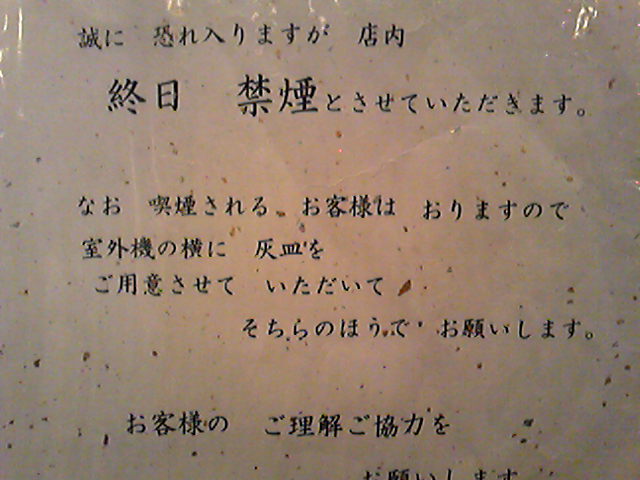 誠に　恐れ入りますが　店内
終日　禁煙とさせていただきます。
なお　喫煙される　お客様は　おりますので
室外機の横に　灰皿を
ご用意させて　いただいて
そちらのほうで　お願いします。
お客様の　ご理解ご協力を
お願いします